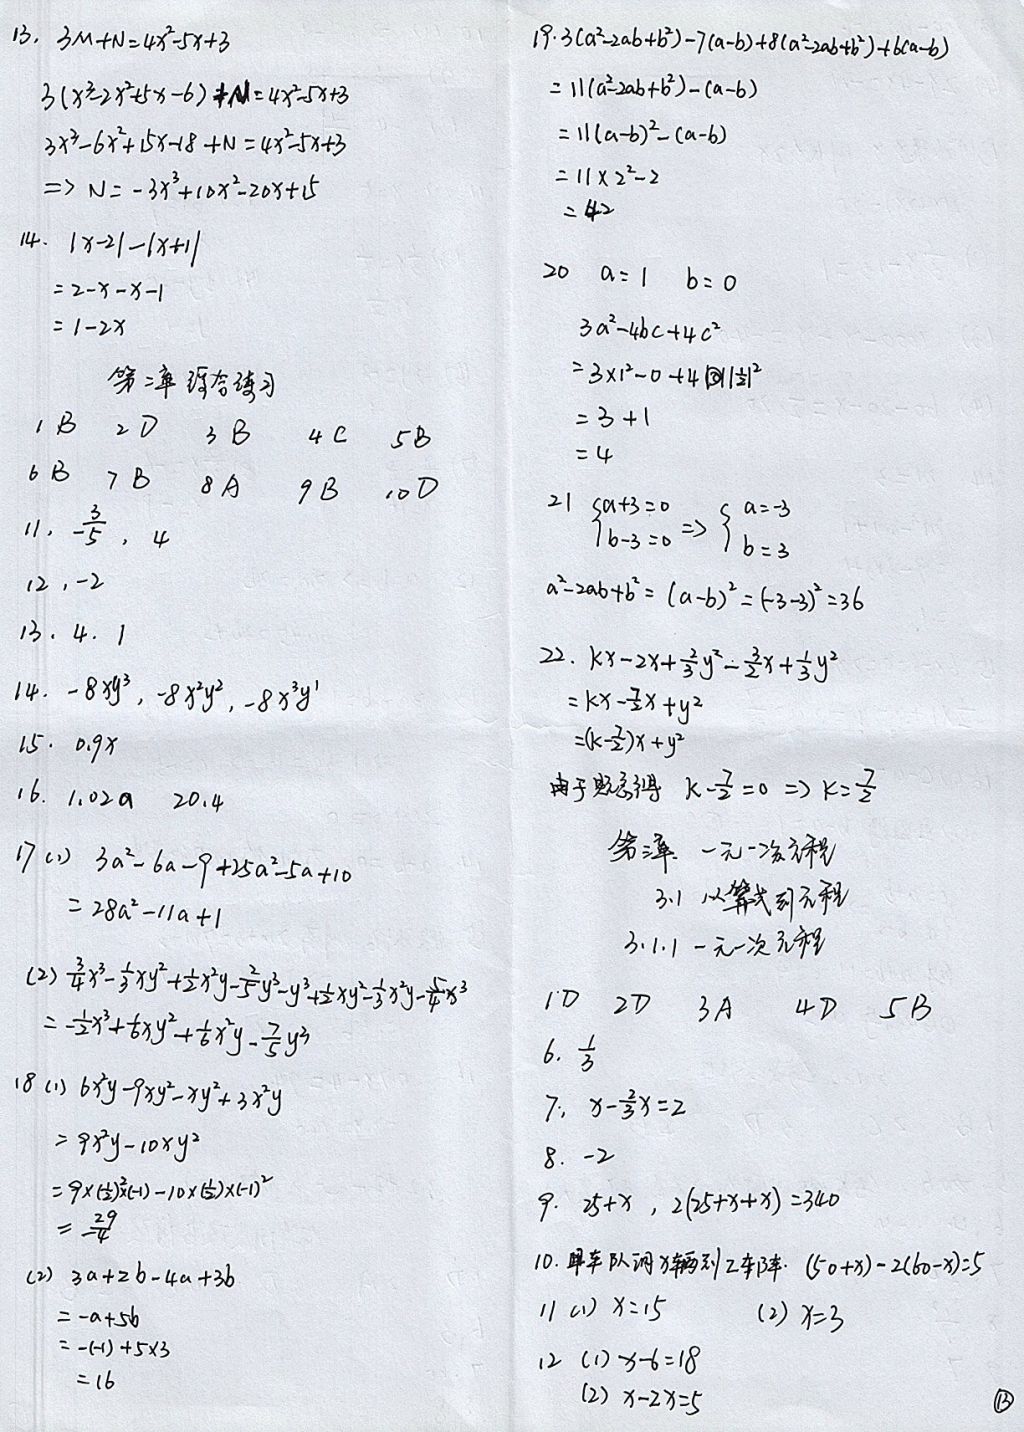 13. 3M+N=4x²-5x+3
3(x³-2x²+5x-6)+N=4x²-5x+3
3x³-6x²+15x-18+N=4x²-5x+3
=> N=-3x³+10x²-20x+15
14. |x-2|-|x+1|
=2-x-x-1
=1-2x
第二章 综合练习
1 B 2 D 3 B 4 C 5 B
6 B 7 B 8 A 9 B 10 D
11. -3/5, 4
12. -2
13. 4. 1
14. -8xy³, -8x²y², -8x³y¹
15. 0.9x
16. 1.02a 20.4
17 (1) 3a²-6a-9+25a²-5a+10
=28a²-11a+1
(2) 3/4x³-1/3xy²+1/2x²y-2/5y³-y³+1/2xy²-1/3x²y-5/4x³
=-1/2x³+1/6xy²+1/6x²y-7/5y³
18 (1) 6x²y-9xy²-xy²+3x²y
=9x²y-10xy²
=9×(1/2)²×(-1)-10×(1/2)×(-1)²
=-29/4
(2) 3a+2b-4a+3b
=-a+5b
=-(-1)+5×3
=16
19. 3(a²-2ab+b²)-7(a-b)+8(a²-2ab+b²)+6(a-b)
=11(a²-2ab+b²)-(a-b)
=11(a-b)²-(a-b)
=11×2²-2
=42
20 a=1 b=0
3a²-4bc+4c²
=3×1²-0+4|1/2|²
=3+1
=4
21 {a+3=0 b-3=0 => {a=-3 b=3
a²-2ab+b²=(a-b)²=(-3-3)²=36
22. kx-2x+2/3y²-3/2x+1/3y²
=kx-7/2x+y²
=(k-7/2)x+y²
由于题意得 k-7/2=0 => k=7/2
第三章 一元一次方程
3.1 从算式到方程
3.1.1 一元一次方程
1 D 2 D 3 A 4 D 5 B
6. 1/3
7. x-2/3x=2
8. -2
9. 25+x, 2(25+x+x)=340
10. 甲车队调x辆到乙车队. (50+x)-2(60-x)=5
11 (1) x=15 (2) x=3
12 (1) x-6=18
(2) x-2x=5
13